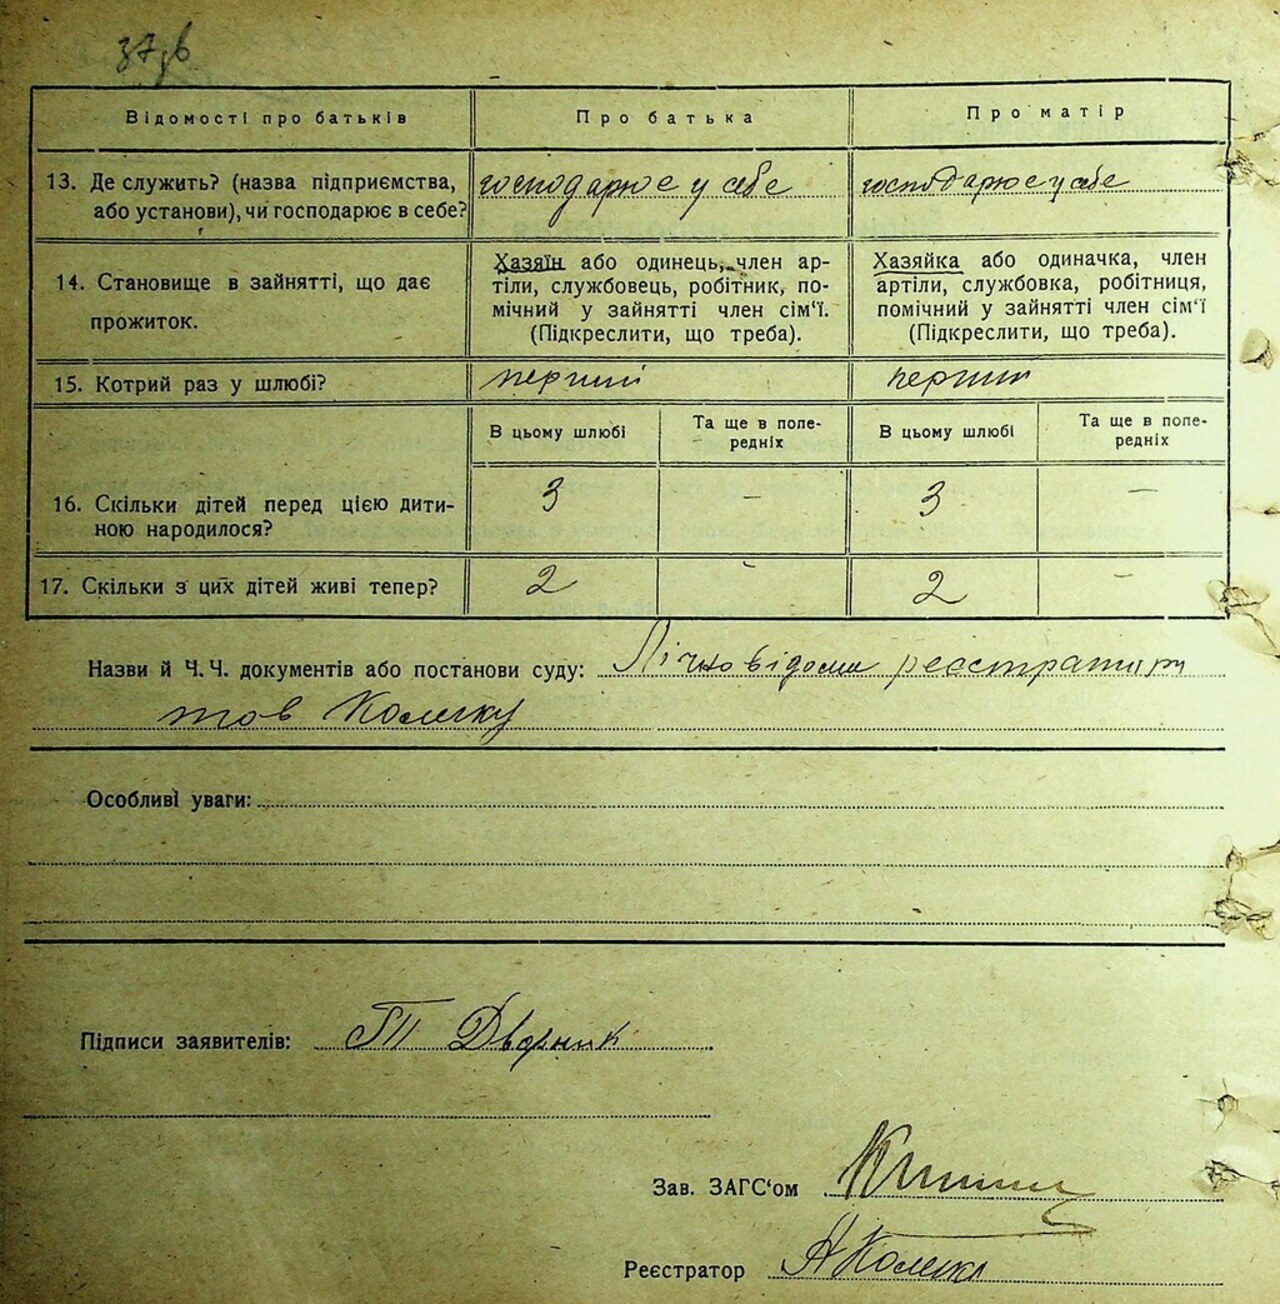 37зв
Відомості про батьків
Про батька
Про матір
13. Де служить? (назва підприємства,
або установи), чи господарює в себе?
господарює у себе
господарює у себе
14. Становище в зайнятті, що дає
прожиток.
Хазяїн або одинець, член ар-
тіли, службовець, робітник, по-
мічний у зайнятті член сім‘ї.
(Підкреслити, що треба).
Хазяйка або одиначка, член
артіли, службовка, робітниця,
помічний у зайнятті член сім‘ї
(Підкреслити, що треба).
15. Котрий раз у шлюбі?
перший
перший
В цьому шлюбі
Та ще в попе-
редніх
В цьому шлюбі
Та ще в попе-
редніх
16. Скільки дітей перед цією дити-
ною народилося?
3
—
3
—
17. Скільки з цих дітей живі тепер?
2
-
2
—
Назви й Ч. Ч. документів або постанови суду: Лічно відоми реєстратору
тов
Особливі уваги:
Підписи заявителів: Дворник
Зав. ЗАГС‘ом
Реєстратор